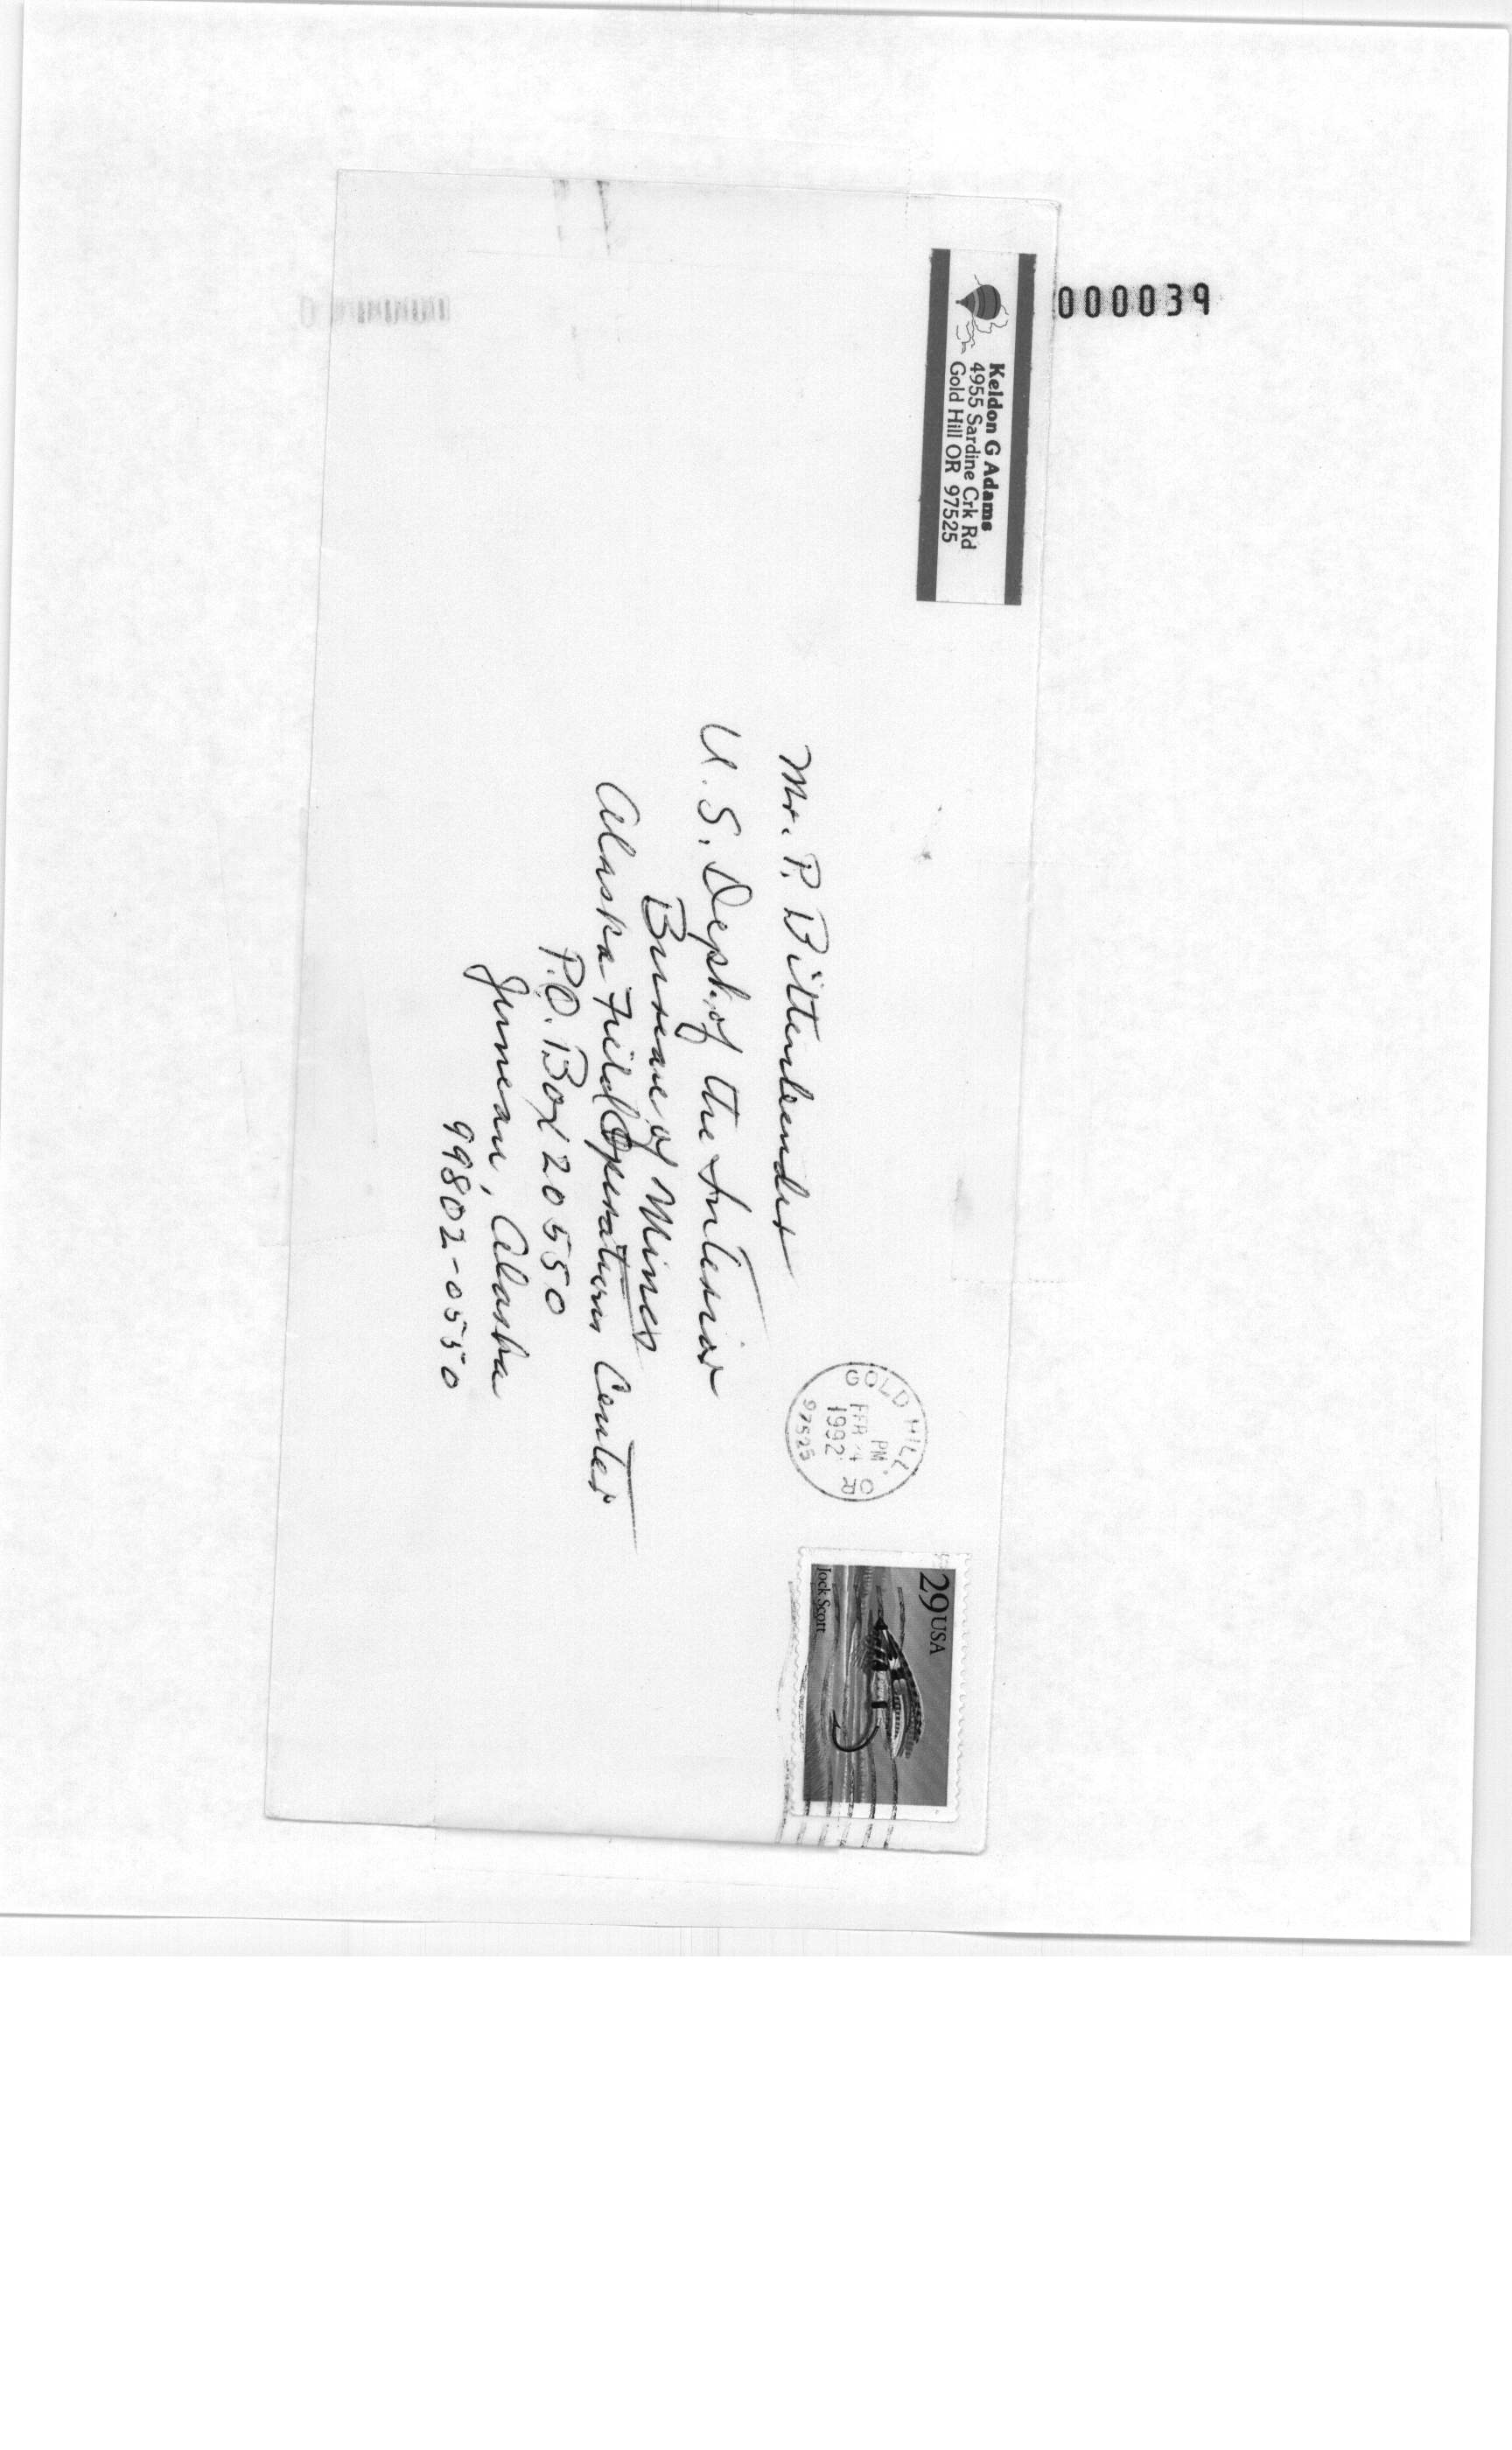 000039
Keldon G Adams
4955 Sardine Crk Rd
Gold Hill OR 97525
GOLD HILL, OR
PM
FEB 4
1992
97525
29USA
Jock Scott
Mr. P. Bittenbender
U.S. Dept. of the Interior
Bureau of Mines
Alaska Field Operations Center
P.O. Box 20550
Juneau, Alaska
99802-0550